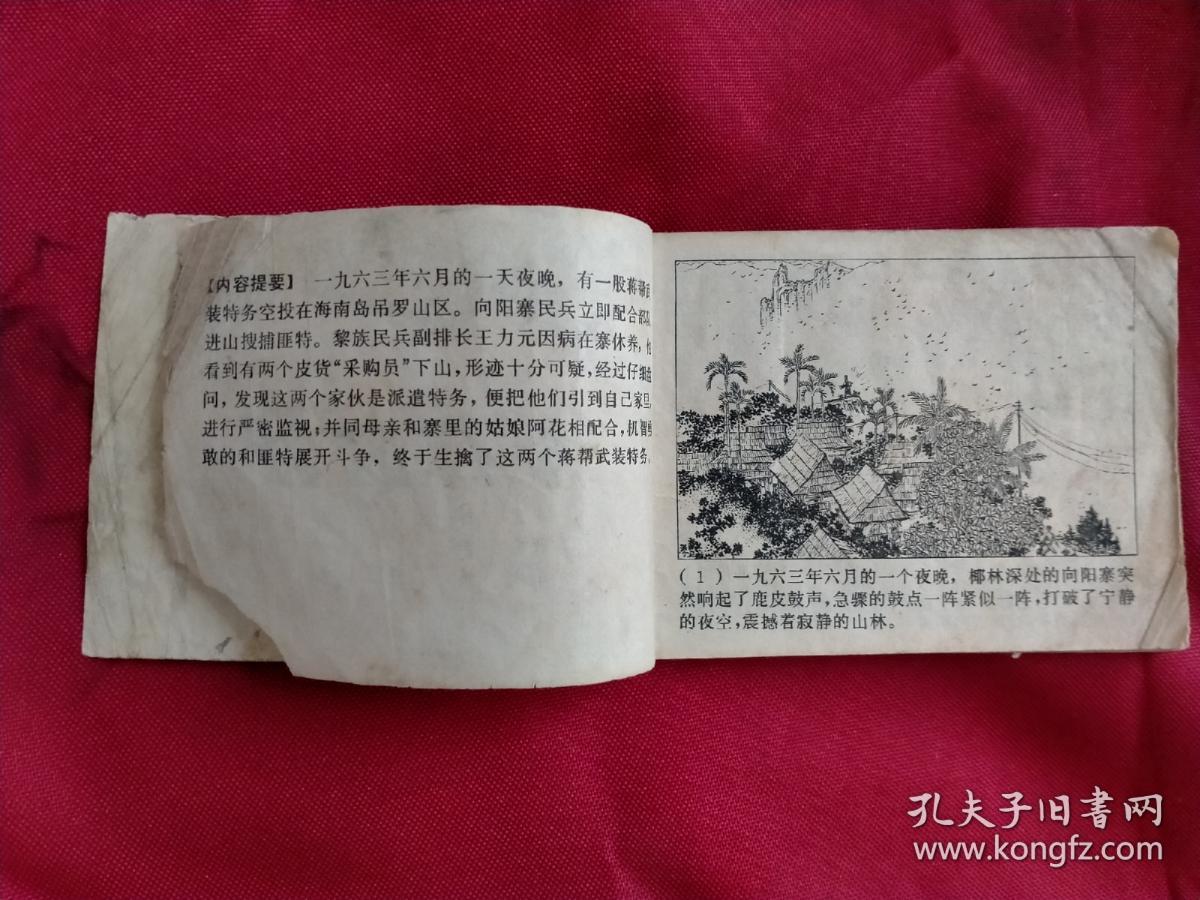 【内容提要】 一九六三年六月的一天夜晚，有一股蒋帮武
装特务空投在海南岛吊罗山区。向阳寨民兵立即配合部队
进山搜捕匪特。黎族民兵副排长王力元因病在寨休养，他
看到有两个皮货“采购员”下山，形迹十分可疑，经过仔细
问，发现这两个家伙是派遣特务，便把他们引到自己家里，
进行严密监视；并同母亲和寨里的姑娘阿花相配合，机智勇
敢的和匪特展开斗争，终于生擒了这两个蒋帮武装特务。
（1）一九六三年六月的一个夜晚，椰林深处的向阳寨突
然响起了鹿皮鼓声，急骤的鼓点一阵紧似一阵，打破了宁静
的夜空，震撼着寂静的山林。
孔夫子旧书网
www.kongfz.com